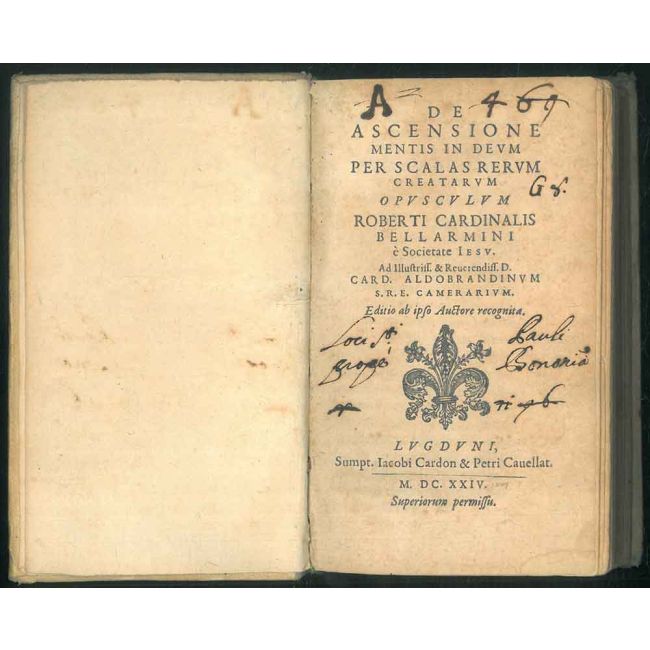 A 469
DE
ASCENSIONE
MENTIS IN DEVM
PER SCALAS RERVM
CREATARVM
G 8.
OPVSCVLVM
ROBERTI CARDINALIS
BELLARMINI
è Societate IESV.
Ad Illustriss. & Reuerendiss. D.
CARD. ALDOBRANDINVM
S.R.E. CAMERARIVM.
Editio ab ipso Auctore recognita.
Loci Sti Pauli
LVGDVNI,
Sumpt. Iacobi Cardon & Petri Cauellat.
M. DC. XXIV.
Superiorum permissu.